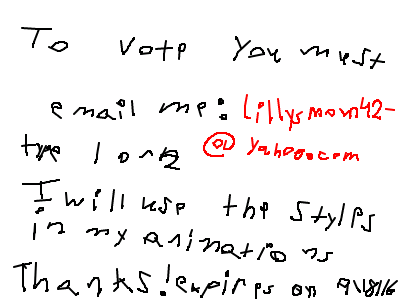 To vote you must
email me: lillysmom42-
type 1 or 2 @ yahoo.com
I will use the styles
in my animations
Thanks! expires on 9/18/16